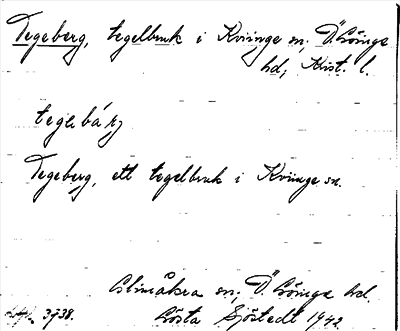 Tegeberg, tegelbruk i Kviinge sn; Ö. Göinge
hd; Krist. l.
tegebárj
Tegeberg, ett tegelbruk i Kviinge sn.
Glimåkra sn; Ö. Göinge hd.
3738. Gösta Sjöstedt 1942